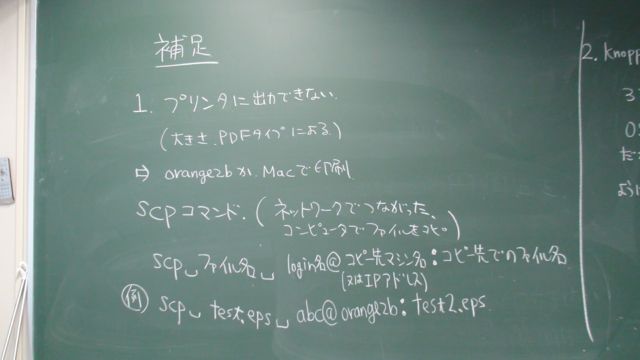 補足
1. プリンタに出力できない.
(大きさ.PDFタイプによる.)
⇨ orange2bか.Macで印刷
scpコマンド.(ネットワークでつながった、
コンピュータでファイルをコピー)
scp␣ファイル名␣ login名@コピー先マシン名:コピー先でのファイル名
(又はIPアドレス)
例 scp␣test.eps␣ abc@orange2b:test2.eps
2. Knopp
3
OS
だ
ように